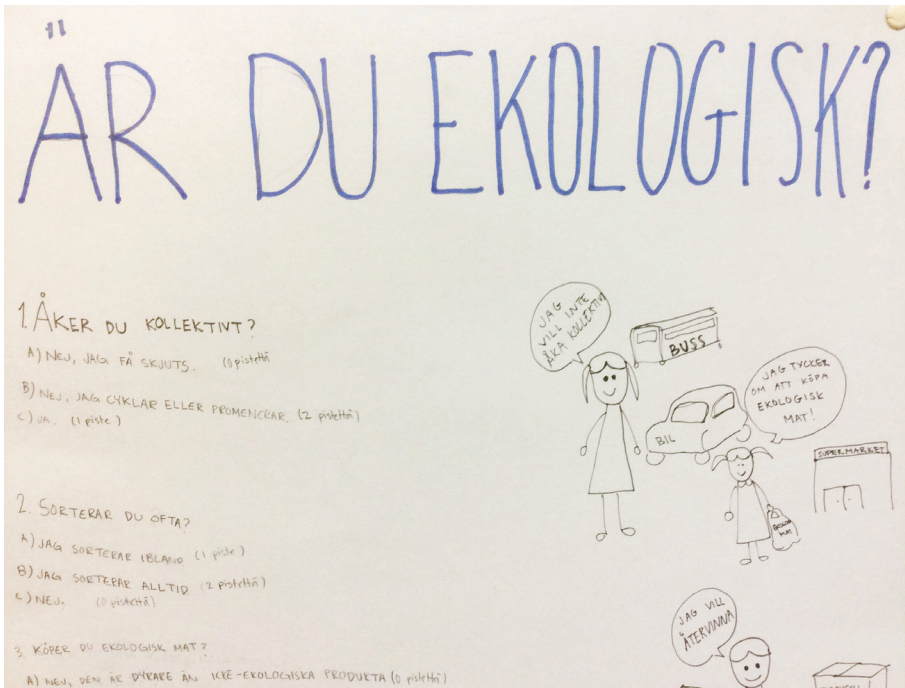 ÄR DU EKOLOGISK?
1. ÅKER DU KOLLEKTIVT?
A) NEJ, JAG FÅ SKJUTS. (0 pistettä
B) NEJ, JAG CYKLAR ELLER PROMENERAR. (2 pistettä)
C) JA. (1 piste)
2. SORTERAR DU OFTA?
A) JAG SORTERAR IBLAND (1 piste)
B) JAG SORTERAR ALLTID (2 pistettä)
C) NEJ. (0 pistettä)
3. KÖPER DU EKOLOGISK MAT?
A) NEJ, DEN ÄR DYRARE ÄN ICKE-EKOLOGISKA PRODUKTA (0 pistettä)
JAG
VILL INTE
ÅKA KOLLEKTIVT
BUSS
BIL
JAG TYCKER
OM ATT KÖPA
EKOLOGISK
MAT!
SUPERMARKET
MAT
JAG VILL
ÅTERVINNA